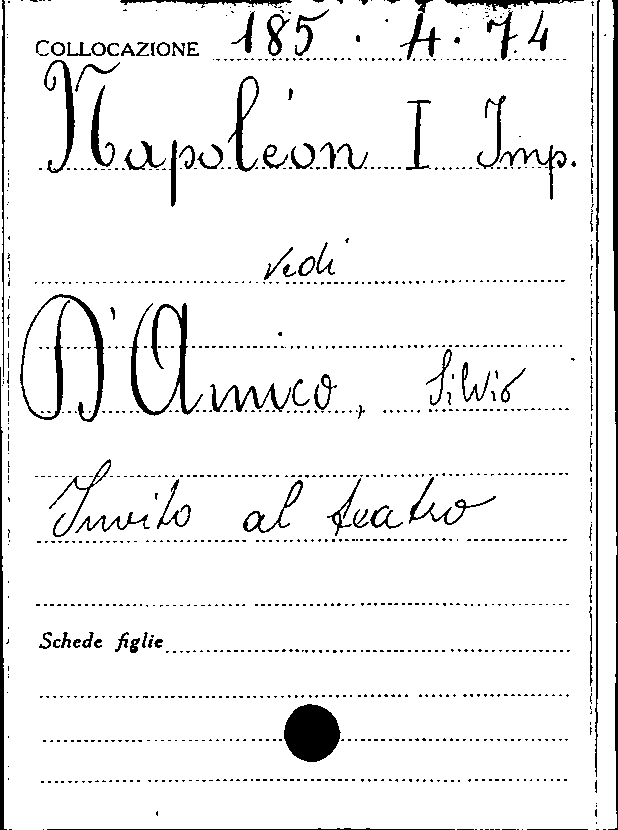 COLLOCAZIONE 185. 4. 74
Napoléon I Imp.
vedi
D'Amico, Silvio
Invito al teatro
Schede figlie